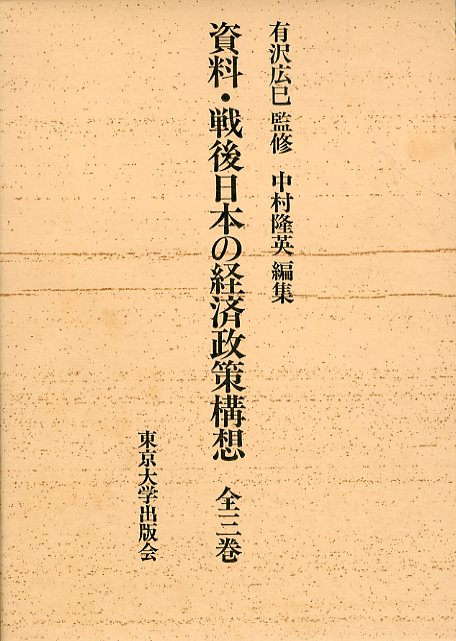 有沢広巳 監修 中村隆英 編集
資料・戦後日本の経済政策構想 全三巻
東京大学出版会